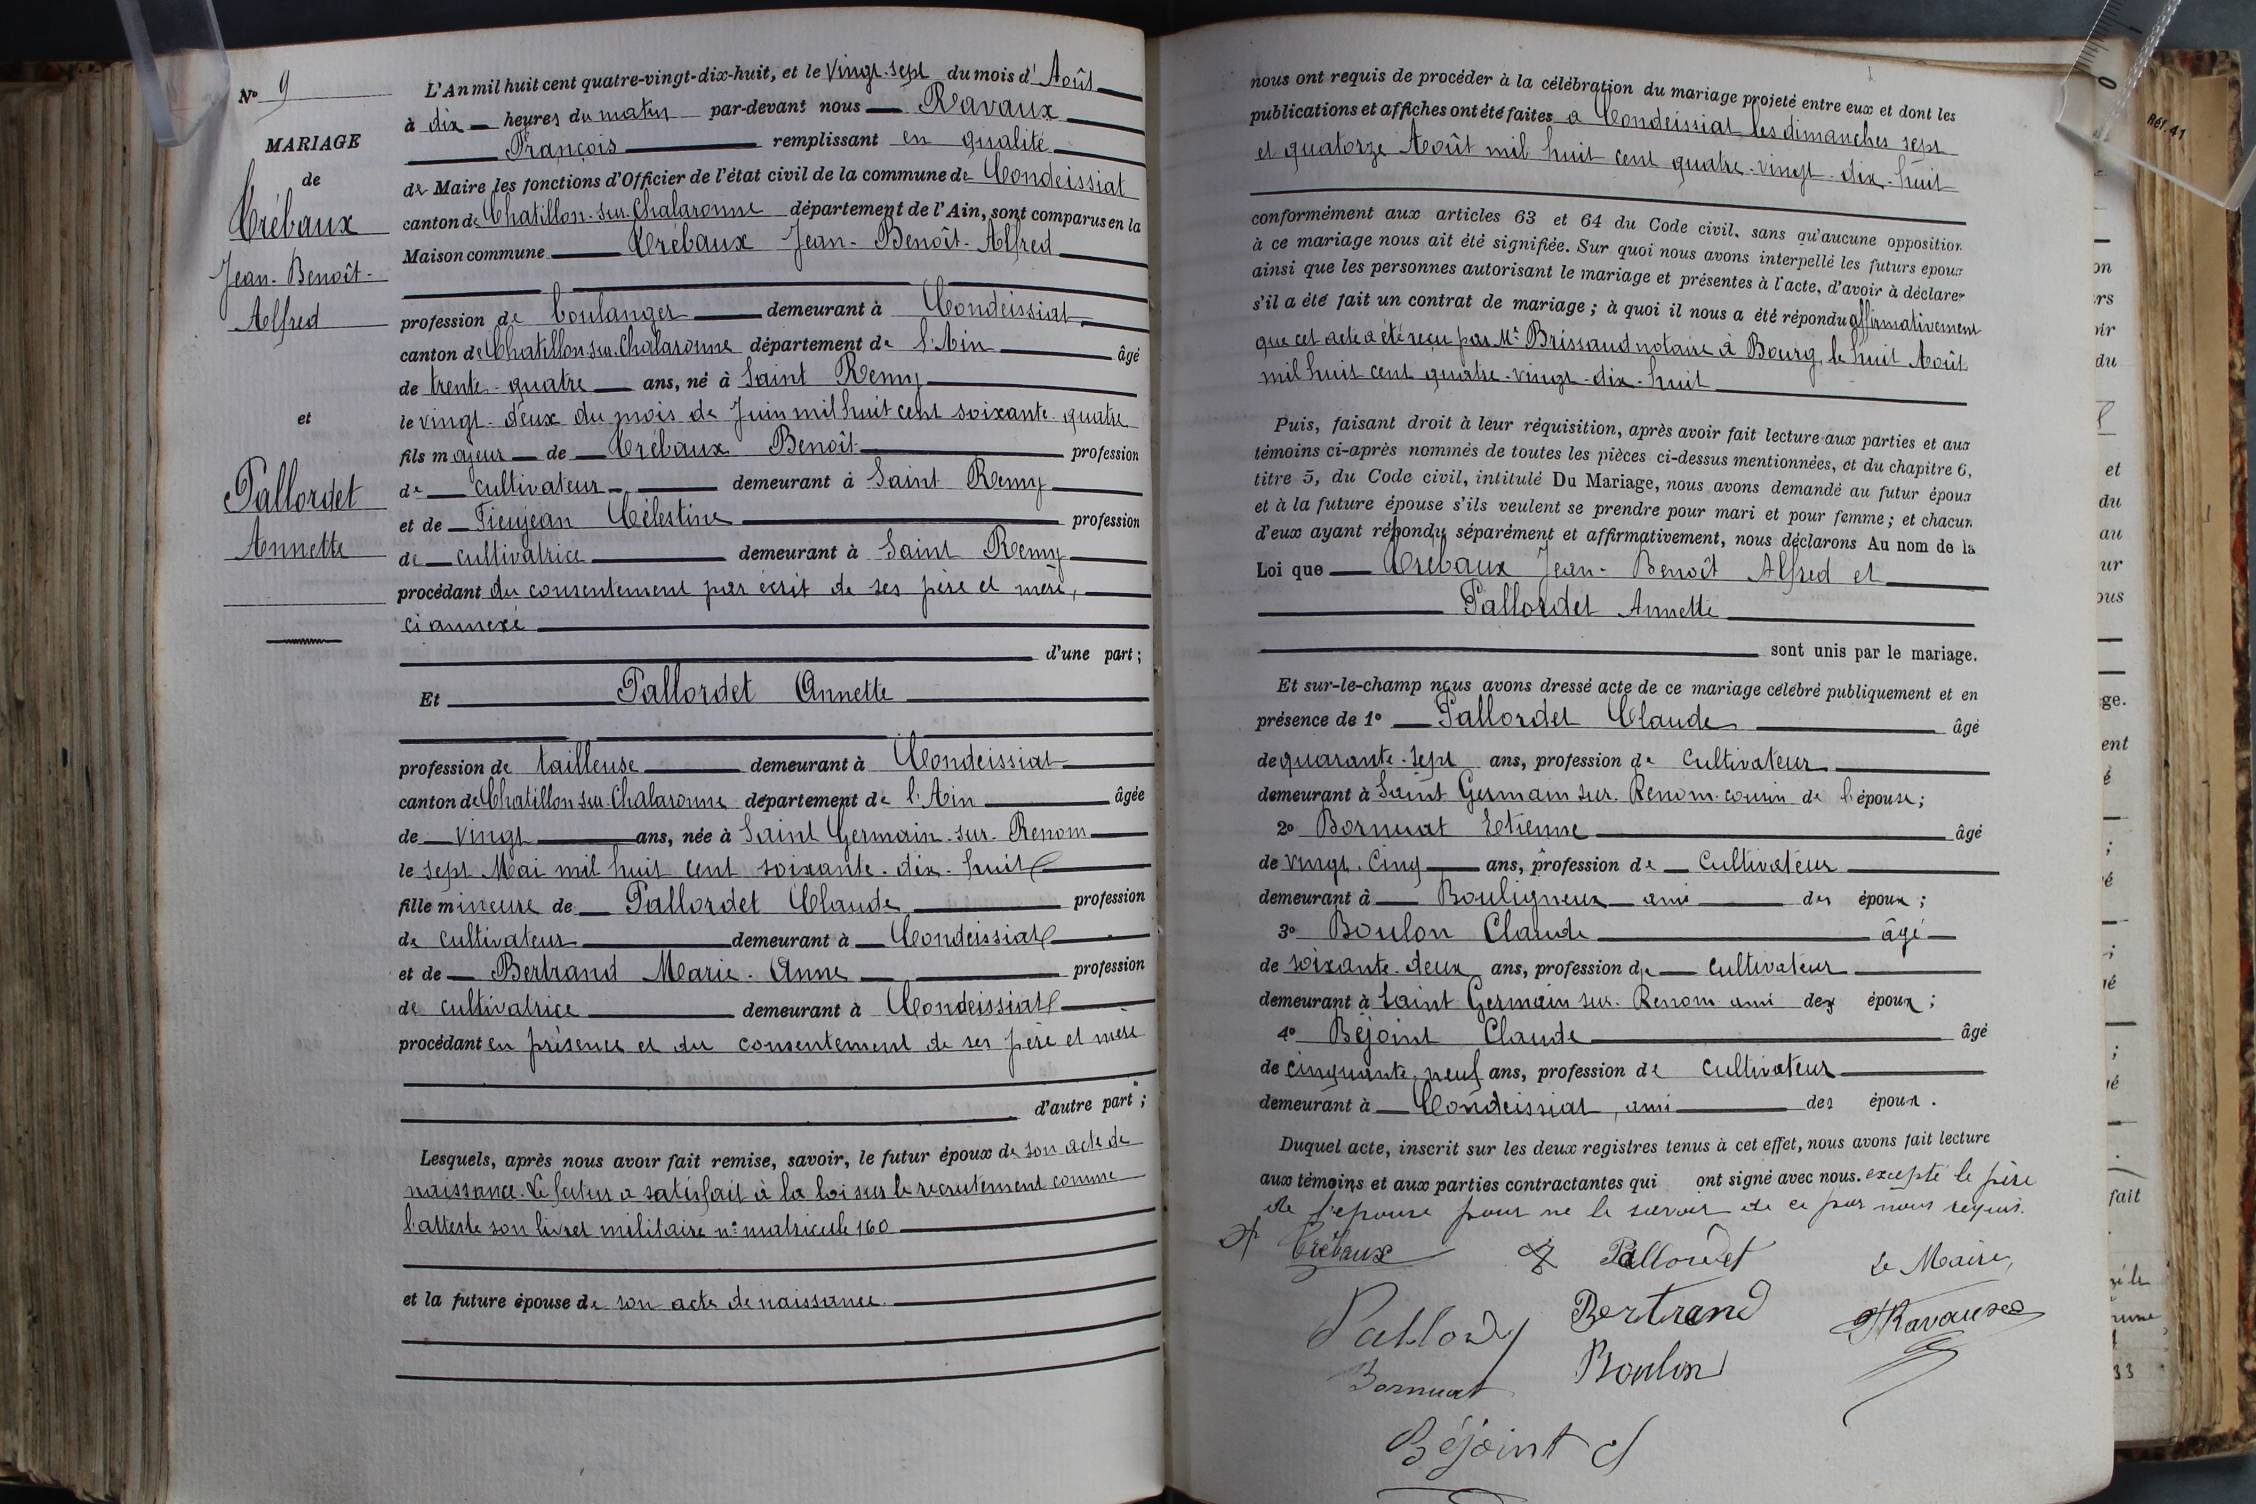 N° 9
MARIAGE
de
Crébaux
Jean-Benoît-
Alfred
et
Pallordet
Annette
L'An mil huit cent quatre-vingt-dix-huit, et le vingt-sept du mois d'Août
à dix heures du matin par-devant nous Ravaux
François remplissant en qualité
de Maire les fonctions d'Officier de l'état civil de la commune de Condeissiat
canton de Chatillon-sur-Chalaronne département de l'Ain, sont comparus en la
Maison commune Crébaux Jean-Benoît-Alfred
profession de boulanger demeurant à Condeissiat
canton de Chatillon sur Chalaronne département de l'Ain âgé
de trente-quatre ans, né à Saint Remy
le vingt-deux du mois de Juin mil huit cent soixante-quatre
fils majeur de Crébaux Benoît profession
de cultivateur demeurant à Saint Remy
et de Tieujean Célestine profession
de cultivatrice demeurant à Saint Remy
procédant du consentement par écrit de ses père et mère,
ci annexé
d'une part;
Et Pallordet Annette
profession de tailleuse demeurant à Condeissiat
canton de Chatillon sur Chalaronne département de l'Ain âgée
de vingt ans, née à Saint Germain-sur-Renom
le sept Mai mil huit cent soixante-dix-huit
fille mineure de Pallordet Claude profession
de cultivateur demeurant à Condeissiat
et de Bertrand Marie-Anne profession
de cultivatrice demeurant à Condeissiat
procédant en présence et du consentement de ses père et mère
d'autre part;
Lesquels, après nous avoir fait remise, savoir, le futur époux de son acte de
naissance. Le futur a satisfait à la loi sur le recrutement comme
l'atteste son livret militaire n° matricule 160
et la future épouse de son acte de naissance.
nous ont requis de procéder à la célébration du mariage projeté entre eux et dont les
publications et affiches ont été faites à Condeissiat les dimanches sept
et quatorze Août mil huit cent quatre-vingt-dix-huit
conformément aux articles 63 et 64 du Code civil, sans qu'aucune opposition
à ce mariage nous ait été signifiée. Sur quoi nous avons interpellé les futurs époux
ainsi que les personnes autorisant le mariage et présentes à l'acte, d'avoir à déclarer
s'il a été fait un contrat de mariage; à quoi il nous a été répondu affirmativement
que cet acte a été reçu par Me Brissaud notaire à Bourg, le huit Août
mil huit cent quatre-vingt-dix-huit
Puis, faisant droit à leur réquisition, après avoir fait lecture aux parties et aux
témoins ci-après nommés de toutes les pièces ci-dessus mentionnées, et du chapitre 6,
titre 5, du Code civil, intitulé Du Mariage, nous avons demandé au futur époux
et à la future épouse s'ils veulent se prendre pour mari et pour femme; et chacun
d'eux ayant répondu séparément et affirmativement, nous déclarons Au nom de la
Loi que Crébaux Jean-Benoît Alfred et
Pallordet Annette
sont unis par le mariage.
Et sur-le-champ nous avons dressé acte de ce mariage célébré publiquement et en
présence de 1° Pallordet Claude âgé
de quarante-sept ans, profession de cultivateur
demeurant à Saint Germain sur Renom cousin de l'épouse;
2° Bornuat Etienne âgé
de vingt-cinq ans, profession de cultivateur
demeurant à Bouligneux ami des époux;
3° Boulon Claude âgé
de soixante-deux ans, profession de cultivateur
demeurant à Saint Germain sur Renom ami des époux;
4° Béjoint Claude âgé
de cinquante-neuf ans, profession de cultivateur
demeurant à Condeissiat, ami des époux.
Duquel acte, inscrit sur les deux registres tenus à cet effet, nous avons fait lecture
aux témoins et aux parties contractantes qui ont signé avec nous. excepté le père
de l'épouse pour ne le savoir de ce par nous requis.
Crébaux Pallordet Le Maire,
Pallordet Bertrand Ravaux
Bornuat Boulon
Béjoint Cl
Réf. 41